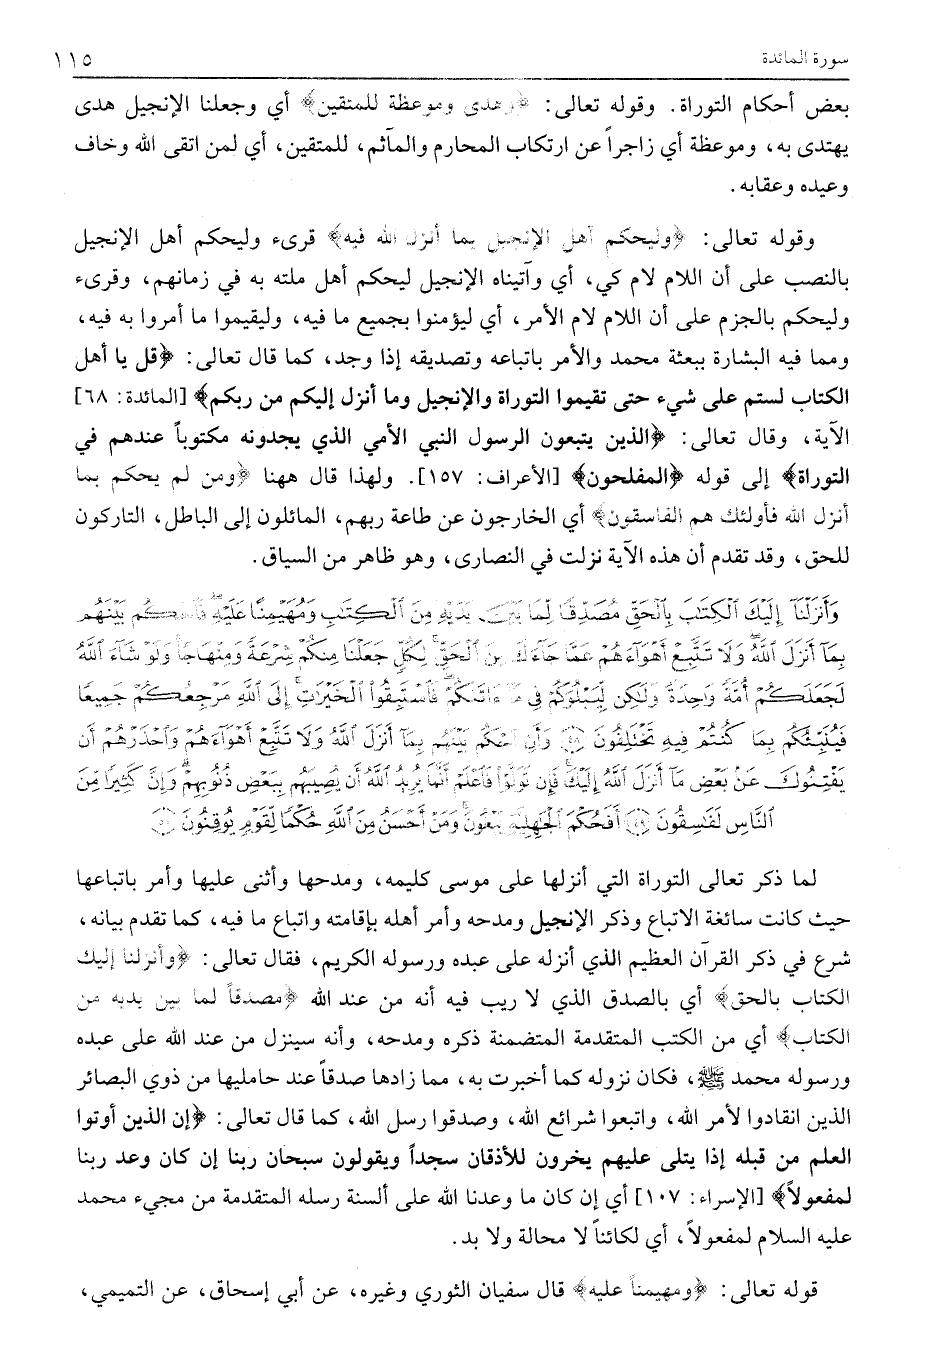 سورة المائدة ١١٥
بعض أحكام التوراة. وقوله تعالى: ﴿وهدى وموعظة للمتقين﴾ أي وجعلنا الإنجيل هدى
يهتدى به، وموعظة أي زاجراً عن ارتكاب المحارم والمآثم، للمتقين، أي لمن اتقى الله وخاف
وعيده وعقابه.
وقوله تعالى: ﴿وليحكم أهل الإنجيل بما أنزل الله فيه﴾ قرىء وليحكم أهل الإنجيل
بالنصب على أن اللام لام كي، أي وآتيناه الإنجيل ليحكم أهل ملته به في زمانهم، وقرىء
وليحكم بالجزم على أن اللام لام الأمر، أي ليؤمنوا بجميع ما فيه، وليقيموا ما أمروا به فيه،
ومما فيه البشارة ببعثة محمد والأمر باتباعه وتصديقه إذا وجد، كما قال تعالى: ﴿قل يا أهل
الكتاب لستم على شيء حتى تقيموا التوراة والإنجيل وما أنزل إليكم من ربكم﴾ [المائدة: ٦٨]
الآية، وقال تعالى: ﴿الذين يتبعون الرسول النبي الأمي الذي يجدونه مكتوباً عندهم في
التوراة﴾ إلى قوله ﴿المفلحون﴾ [الأعراف: ١٥٧]. ولهذا قال ههنا ﴿ومن لم يحكم بما
أنزل الله فأولئك هم الفاسقون﴾ أي الخارجون عن طاعة ربهم، المائلون إلى الباطل، التاركون
للحق، وقد تقدم أن هذه الآية نزلت في النصارى، وهو ظاهر من السياق.
وَأَنزَلْنَآ إِلَيْكَ ٱلْكِتَٰبَ بِٱلْحَقِّ مُصَدِّقًا لِّمَا بَيْنَ يَدَيْهِ مِنَ ٱلْكِتَٰبِ وَمُهَيْمِنًا عَلَيْهِ فَٱحْكُم بَيْنَهُم
بِمَآ أَنزَلَ ٱللَّهُ وَلَا تَتَّبِعْ أَهْوَآءَهُمْ عَمَّا جَآءَكَ مِنَ ٱلْحَقِّ لِكُلٍّ جَعَلْنَا مِنكُمْ شِرْعَةً وَمِنْهَاجًا وَلَوْ شَآءَ ٱللَّهُ
لَجَعَلَكُمْ أُمَّةً وَٰحِدَةً وَلَٰكِن لِّيَبْلُوَكُمْ فِى مَآ ءَاتَىٰكُمْ فَٱسْتَبِقُوا۟ ٱلْخَيْرَٰتِ إِلَى ٱللَّهِ مَرْجِعُكُمْ جَمِيعًا
فَيُنَبِّئُكُم بِمَا كُنتُمْ فِيهِ تَخْتَلِفُونَ ﴿٤٨﴾ وَأَنِ ٱحْكُم بَيْنَهُم بِمَآ أَنزَلَ ٱللَّهُ وَلَا تَتَّبِعْ أَهْوَآءَهُمْ وَٱحْذَرْهُمْ أَن
يَفْتِنُوكَ عَنۢ بَعْضِ مَآ أَنزَلَ ٱللَّهُ إِلَيْكَ فَإِن تَوَلَّوْا۟ فَٱعْلَمْ أَنَّمَا يُرِيدُ ٱللَّهُ أَن يُصِيبَهُم بِبَعْضِ ذُنُوبِهِمْ وَإِنَّ كَثِيرًا مِّنَ
ٱلنَّاسِ لَفَٰسِقُونَ ﴿٤٩﴾ أَفَحُكْمَ ٱلْجَٰهِلِيَّةِ يَبْغُونَ وَمَنْ أَحْسَنُ مِنَ ٱللَّهِ حُكْمًا لِّقَوْمٍ يُوقِنُونَ ﴿٥٠﴾
لما ذكر تعالى التوراة التي أنزلها على موسى كليمه، ومدحها وأثنى عليها وأمر باتباعها
حيث كانت سائغة الاتباع وذكر الإنجيل ومدحه وأمر أهله بإقامته واتباع ما فيه، كما تقدم بيانه،
شرع في ذكر القرآن العظيم الذي أنزله على عبده ورسوله الكريم، فقال تعالى: ﴿وأنزلنا إليك
الكتاب بالحق﴾ أي بالصدق الذي لا ريب فيه أنه من عند الله ﴿مصدقاً لما بين يديه من
الكتاب﴾ أي من الكتب المتقدمة المتضمنة ذكره ومدحه، وأنه سينزل من عند الله على عبده
ورسوله محمد ﷺ، فكان نزوله كما أخبرت به، مما زادها صدقاً عند حامليها من ذوي البصائر
الذين انقادوا لأمر الله، واتبعوا شرائع الله، وصدقوا رسل الله، كما قال تعالى: ﴿إن الذين أوتوا
العلم من قبله إذا يتلى عليهم يخرون للأذقان سجداً ويقولون سبحان ربنا إن كان وعد ربنا
لمفعولاً﴾ [الإسراء: ١٠٧] أي إن كان ما وعدنا الله على ألسنة رسله المتقدمة من مجيء محمد
عليه السلام لمفعولاً، أي لكائناً لا محالة ولا بد.
قوله تعالى: ﴿ومهيمناً عليه﴾ قال سفيان الثوري وغيره، عن أبي إسحاق، عن التميمي،